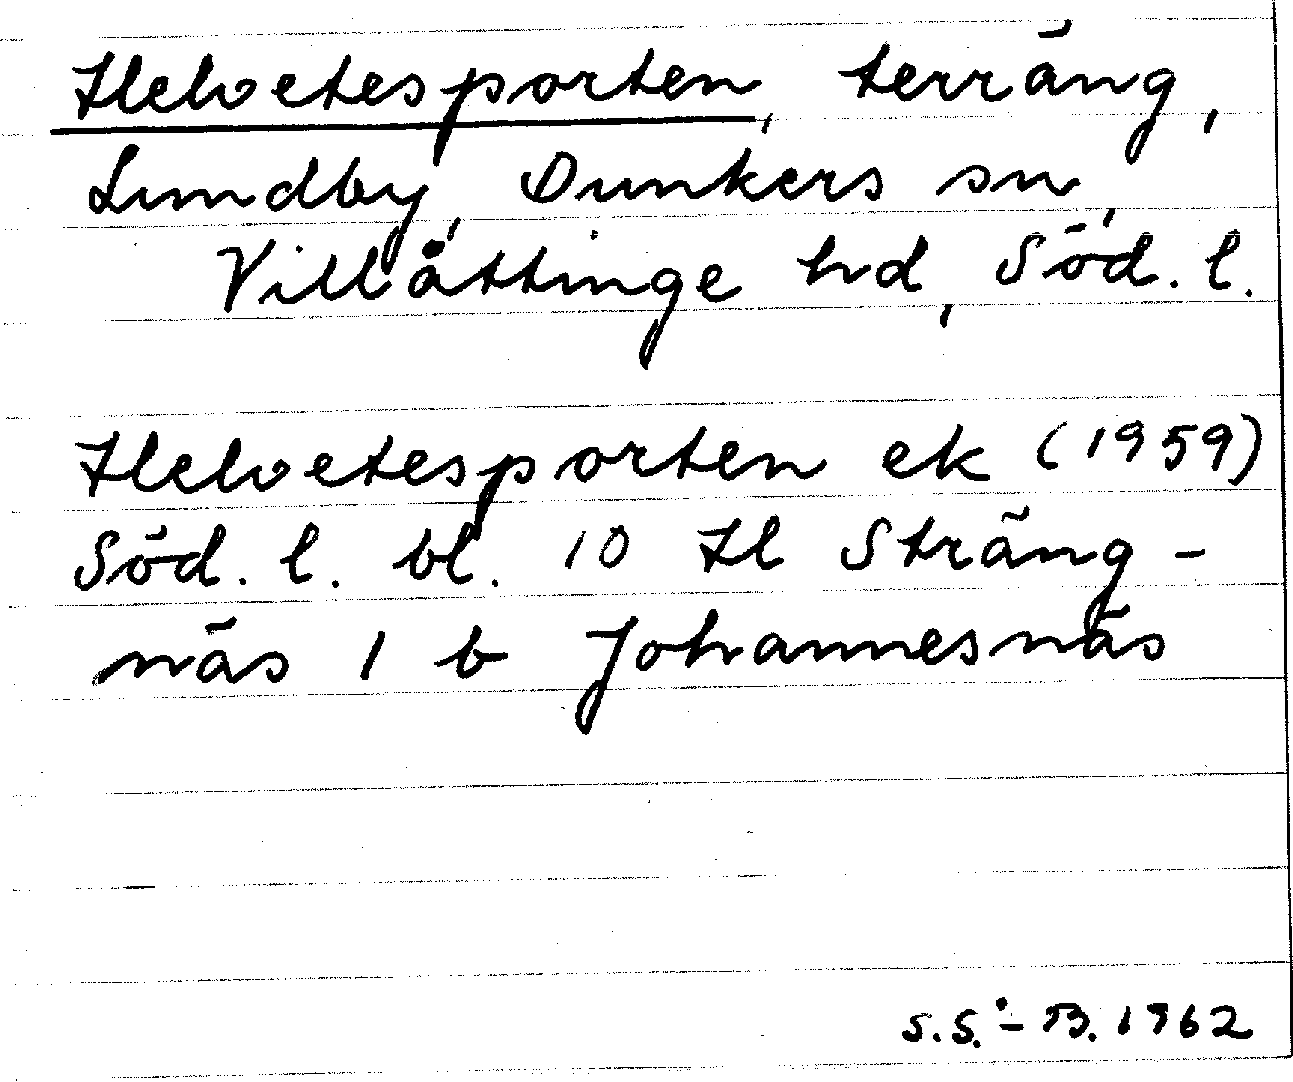 Helvetesporten, terräng,
Lundby, Dunkers sn,
Villåttinge hd, Söd. l.
Helvetesporten ek (1959)
Söd. l. bl. 10 H Sträng-
näs 1 b Johannesnäs
S.S.-B. 1962